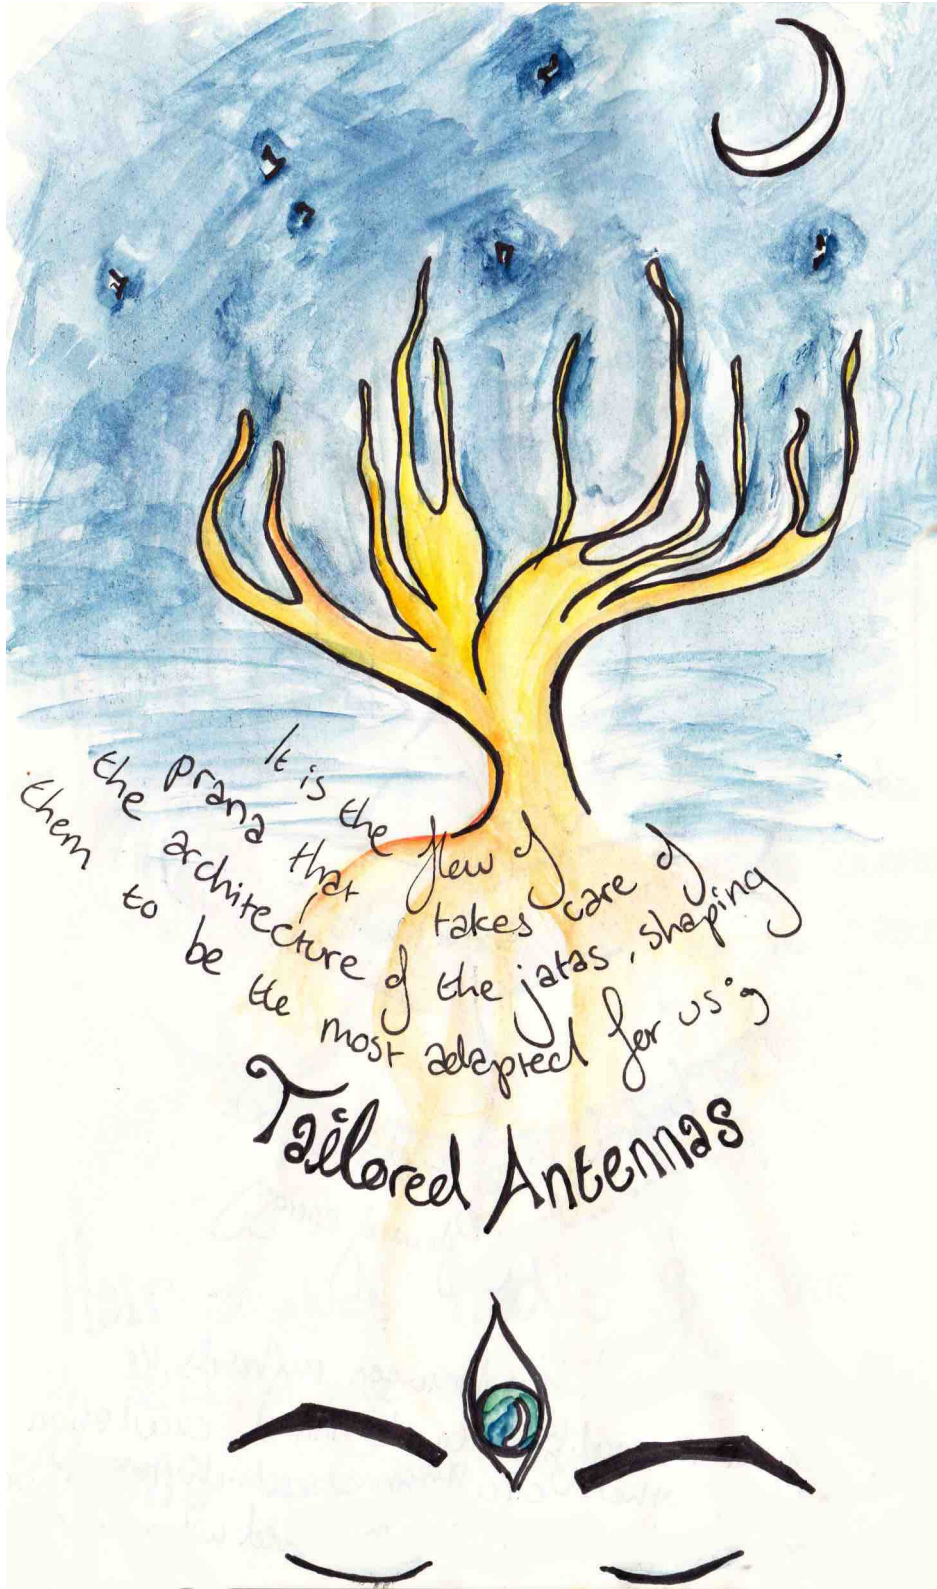 It is the flow of
prana that takes care of
the architecture of the jatas, shaping
them to be the most adapted for us :)
Tailored Antennas